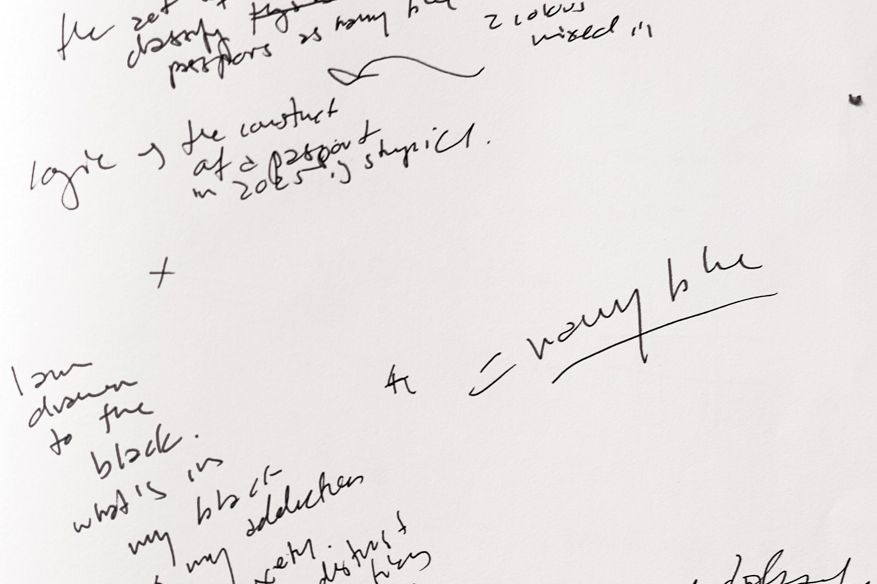 the
classify
passports as navy
2 colours
mixed in
logic of the construct
of a passport
in 2025 is stupid.
+
= navy blue
I am
drawn
to the
black.
what is in
my black
my addiction
distrust